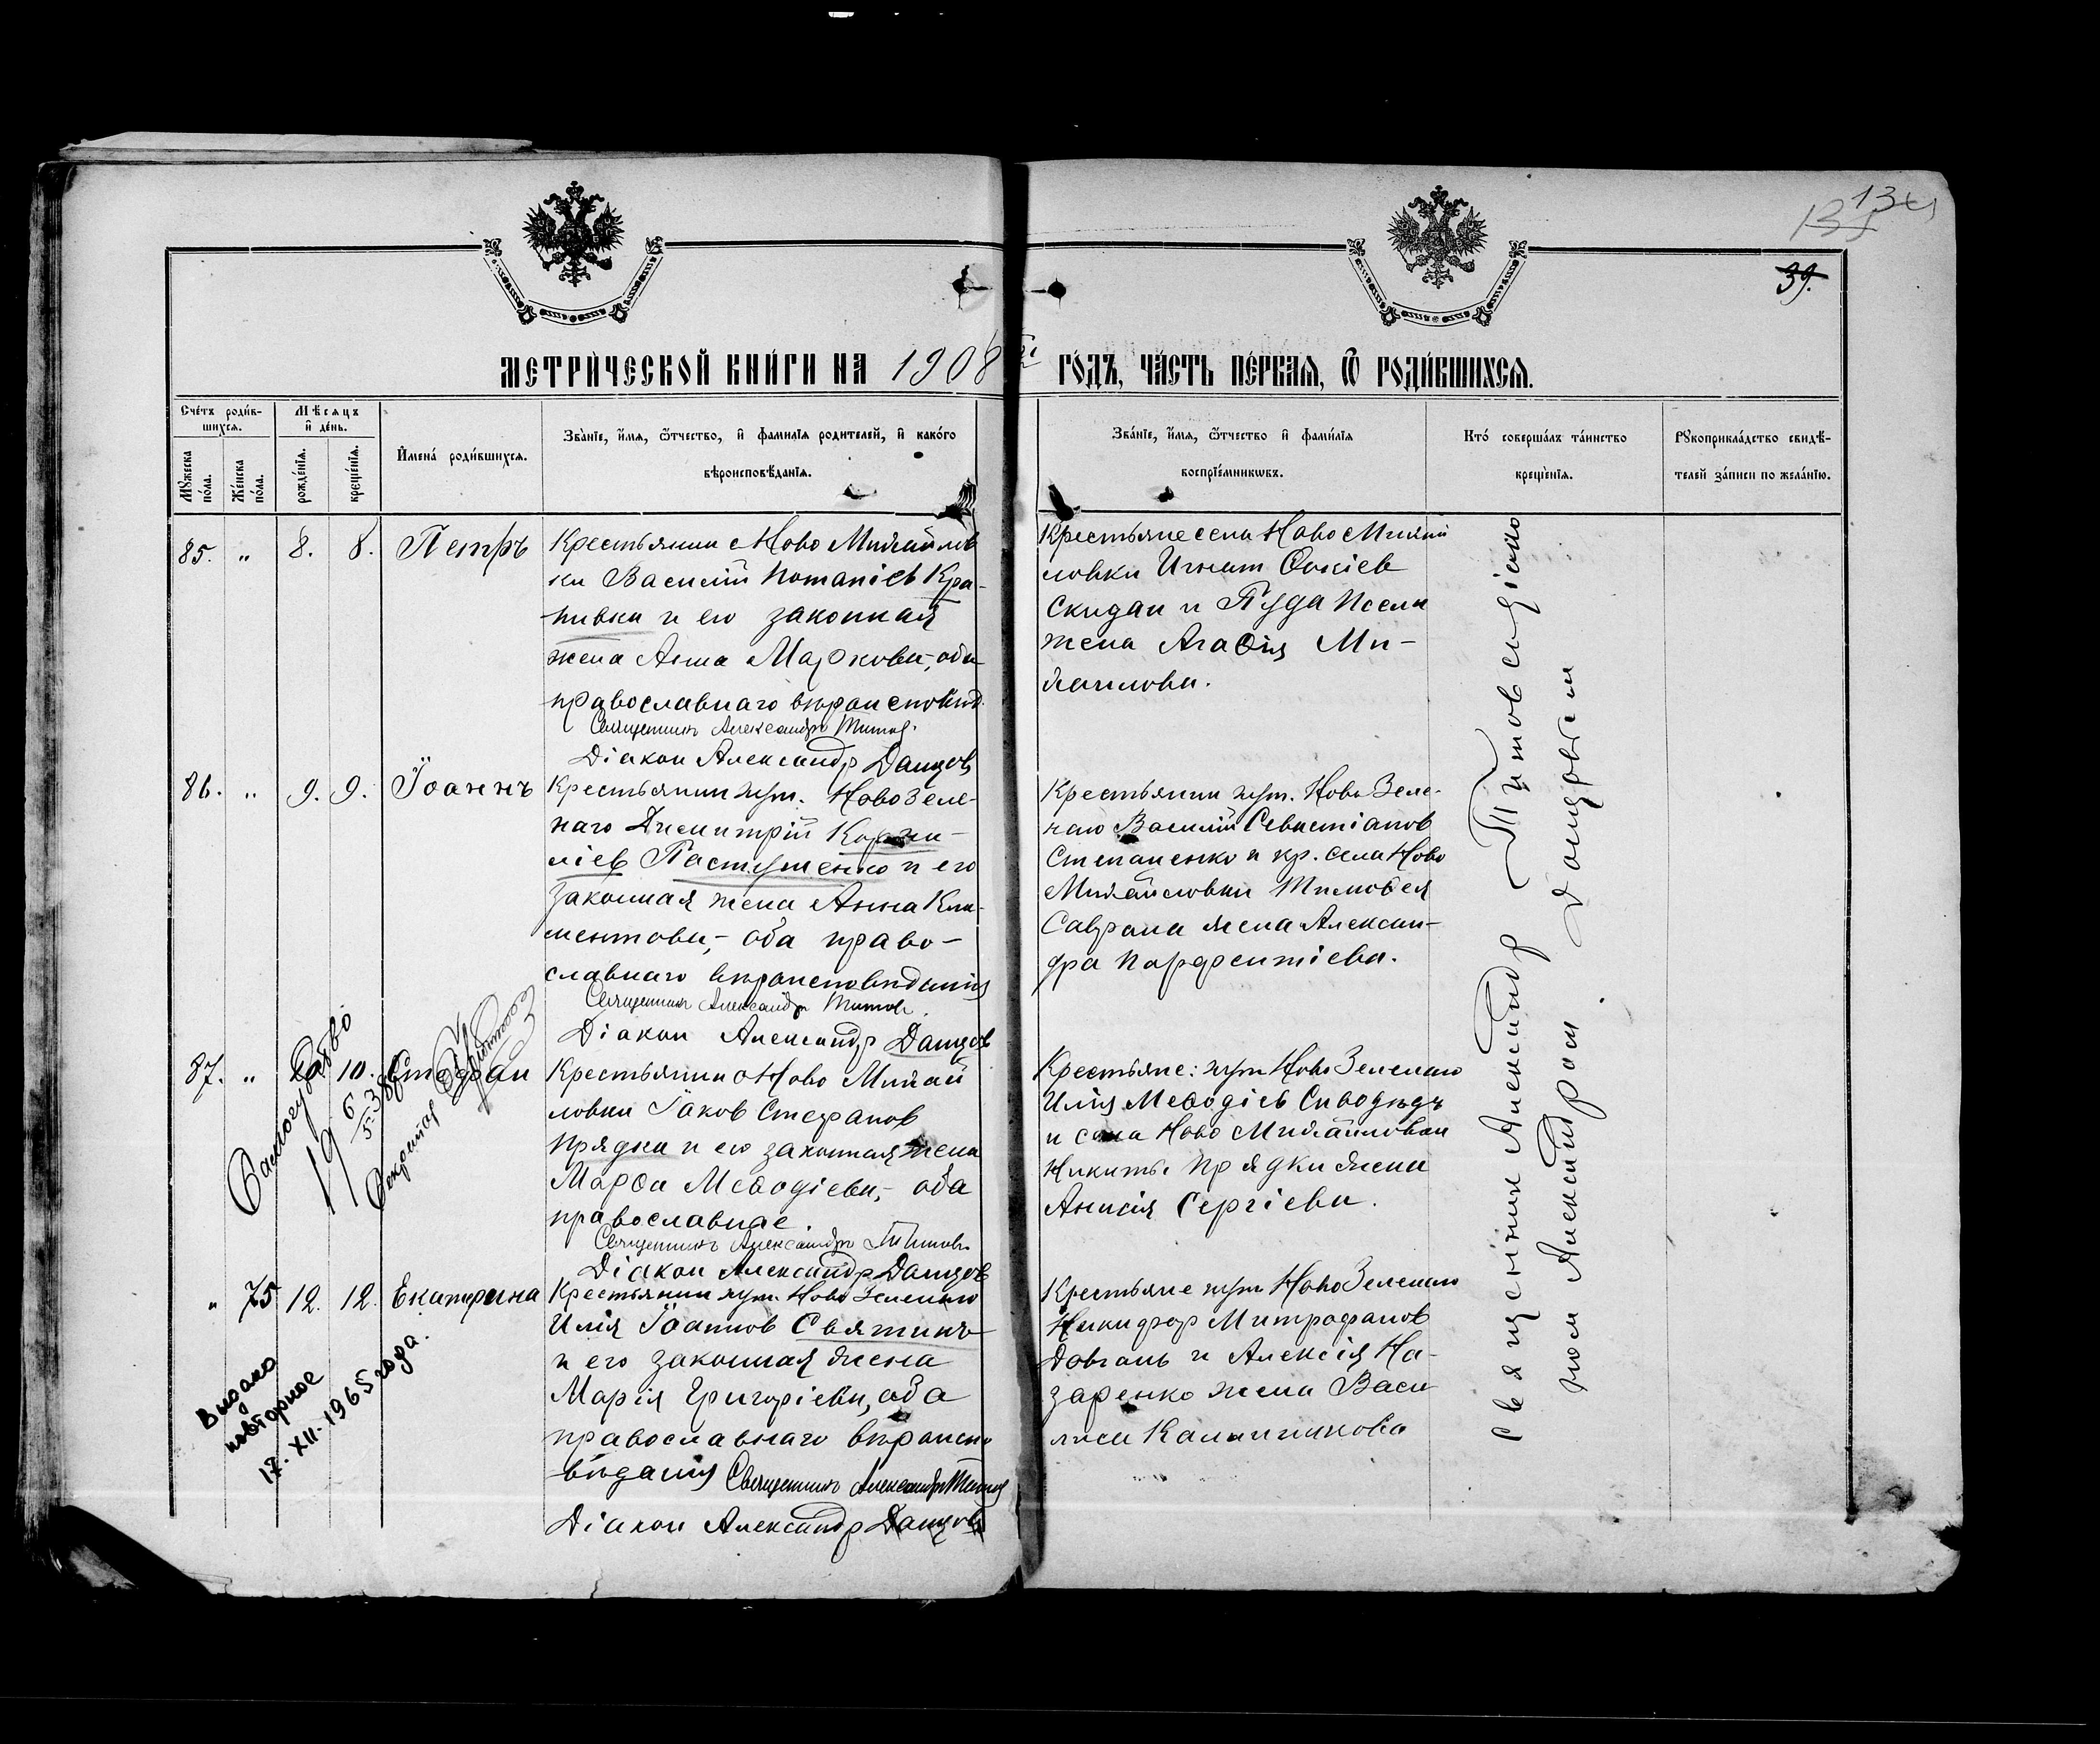 134
135
39.
МЕТРИЧЕСКОЙ КНИГИ НА 1908 ГОДЪ, ЧАСТЬ ПЕРВАЯ, Ѿ РОДИВШИХСЯ.
Счетъ родившихся.
Мужеска пола.
Женска пола.
Мѣсяцъ и день.
рожденїя.
крещенїя.
Имена родившихся.
Званїе, имя, ѿчество, и фамилїя родителей, и какого вѣроисповѣданїя.
Званїе, имя, ѿчество и фамилїя воспрїемниковъ.
Кто совершалъ таинство крещенїя.
Рукоприкладство свидѣтелей записи по желанїю.
85. „ 8. 8. Петръ
Крестьянин с Ново Михайлов
ки Василій Потапіев Кра-
пивка и его законная
жена Анна Маркова, оба
православнаго вѣроисповѣд.
Священникъ Александръ Титов.
Діакон Александр Данцов
Крестьяне села Ново Михай
ловки Игнат
Скидан и Гуда
жена Агаѳія Ми-
хаилова.
86. „ 9. 9. Іоаннъ
Крестьянин хут. Ново Зеле-
наго Димитрій Корни-
ліев Пастушенко и его
законная жена Анна Кли-
ментова, оба право-
славнаго вѣроисповѣданія
Священникъ Александръ Титов.
Діакон Александр Данцов
Крестьянин хут. Ново Зеле-
наго Василій Севастіанов
Степаненко и кр. села Ново
Михайловки Тимоѳея
Саврана жена Алексан-
дра Парфентіева.
87. „ 10. Стефан
Крестьянин с Ново Михай
ловки Іаков Стефанов
Прядка и его законная жена
Марѳа Меѳодіева, оба
православнае.
Священникъ Александръ Титовъ
Діакон Александр Данцов
Крестьяне: хут Ново Зеленаго
Илія Меѳодіев
и села Ново Михайловки
Никиты Прядки жена
Анисія Сергіева.
6
5. 38
19
„ 75 12. 12. Екатерина
Крестьянин хут. Ново Зеленаго
Илія Іоаннов Святинъ
и его законная жена
Марія Григоріева, оба
православнаго вѣроиспо
вѣданія Священникъ Александръ Титов
Діакон Александр Данцов
Крестьяне хут Ново Зеленаго
Никифор Митрофанов
Довгань и Алексія На-
заренко жена Васи
лиса Калинникова
Выдано
повторное
17. XII. 1965 года.
Священник Александр Титов с діако
ном Александром Данцовым